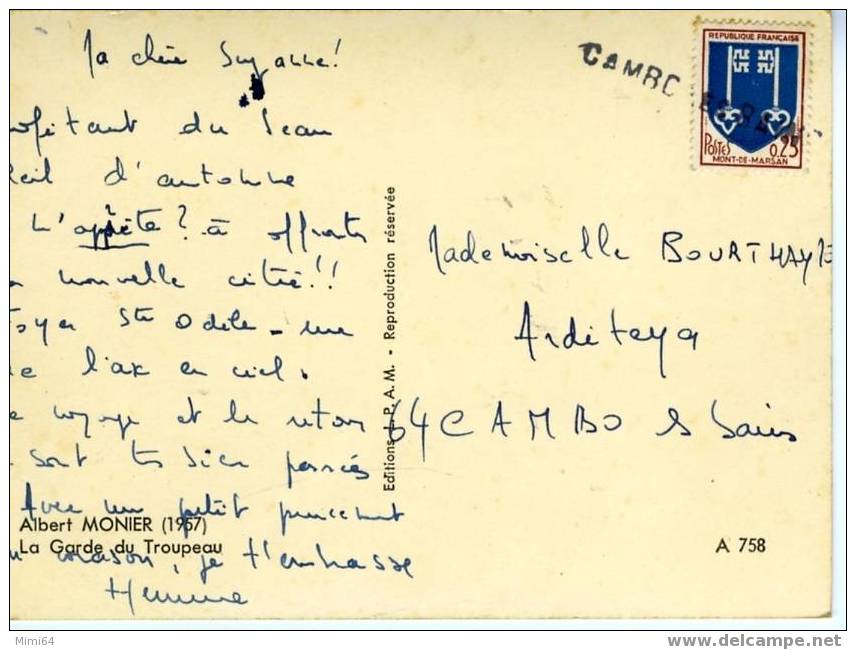 Ma chère Suzanne !
profitant du beau
soleil d'automne
m'apprête ? à affronter
nouvelle citée !!
Foyer Ste Odile - rue
de l'arc en ciel.
voyage et le retour
se sont très bien passés
Avec un petit pincement
au coeur, je t'embrasse
Albert MONIER (1957)
La Garde du Troupeau
Editions P.A.M. - Reproduction réservée
CAMBO LES BAINS
REPUBLIQUE FRANÇAISE
POSTES 0,25
MONT-DE-MARSAN
Mademoiselle BOURTHAYRE
Arditeya
64 CAMBO les Bains
A 758
Mimi64
www.delcampe.net